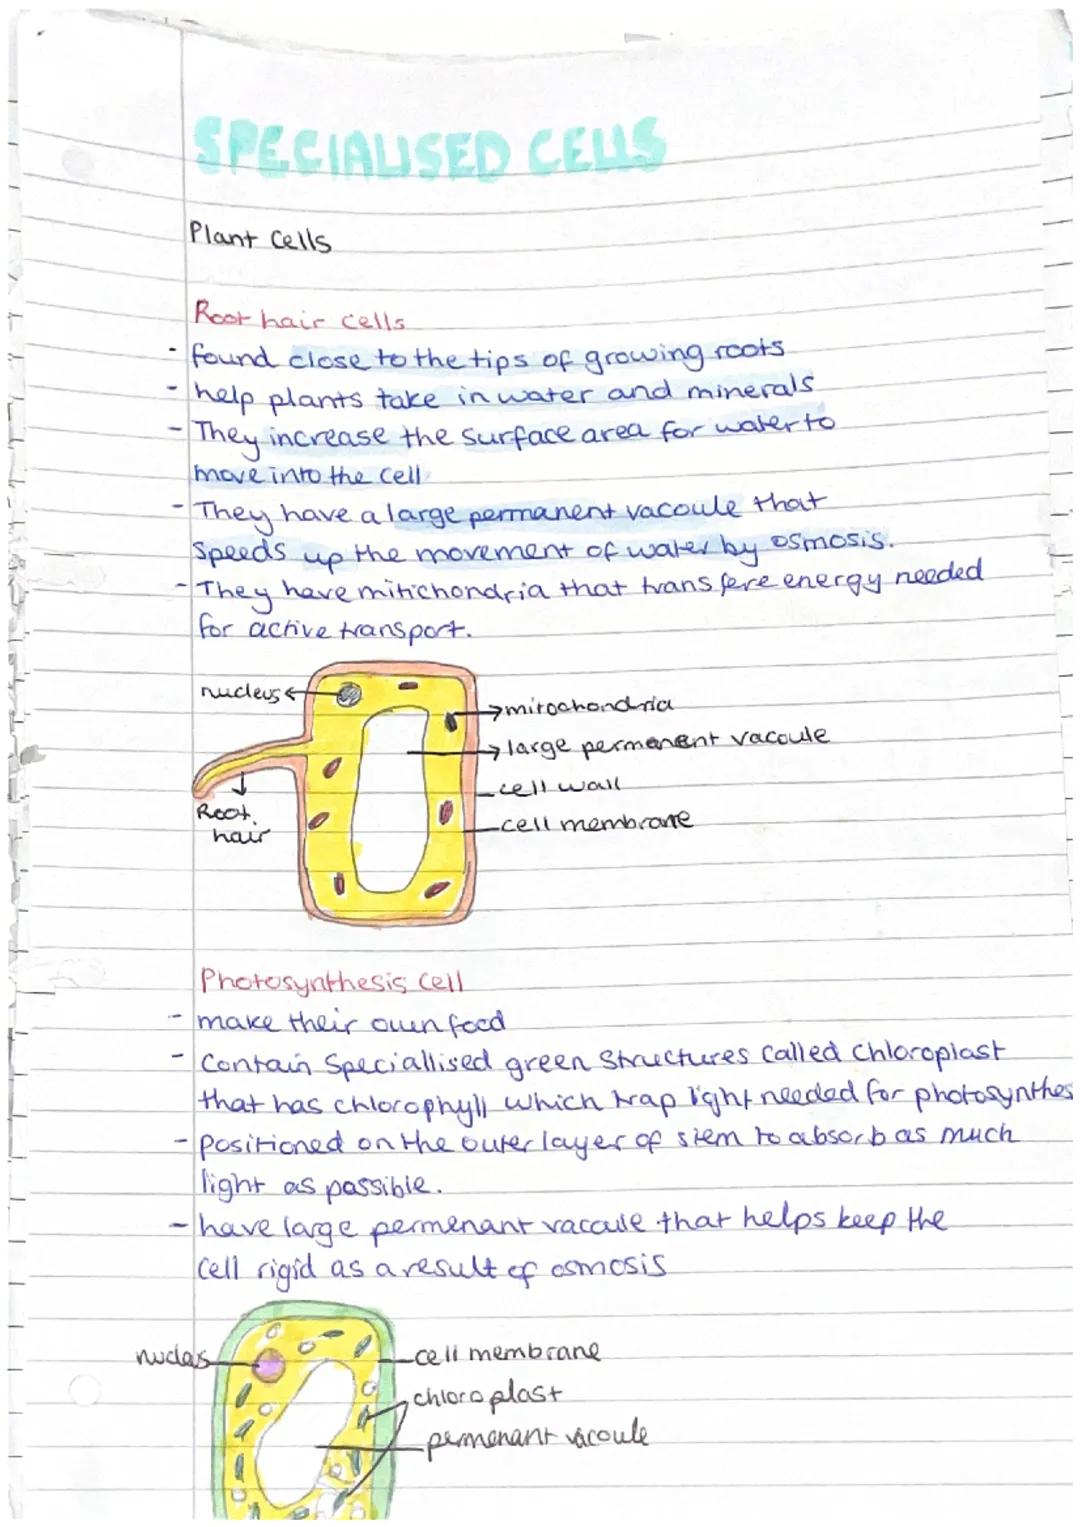 SPECIALISED CELLS
Plant Cells
Root hair cells
- found close to the tips of growing roots
- help plants take in water and minerals
- They increase the surface area for water to
move into the cell
- They have a large permanent vacoule that
speeds up the movement of water by osmosis.
- They have mitichondria that transfere energy needed
for active transport.
nucleus
mitochondria
large permenent vacoule
cell wall
Root
hair
cell membrane
Photosynthesis cell
- make their own food
- Contain Speciallised green Structures called Chloroplast
that has chlorophyll which trap light needed for photosynthes
- positioned on the outer layer of stem to absorb as much
light as possible.
- have large permenant vacoule that helps keep the
cell rigid as a result of osmosis
nucleus
cell membrane
chloroplast
permenant vacoule